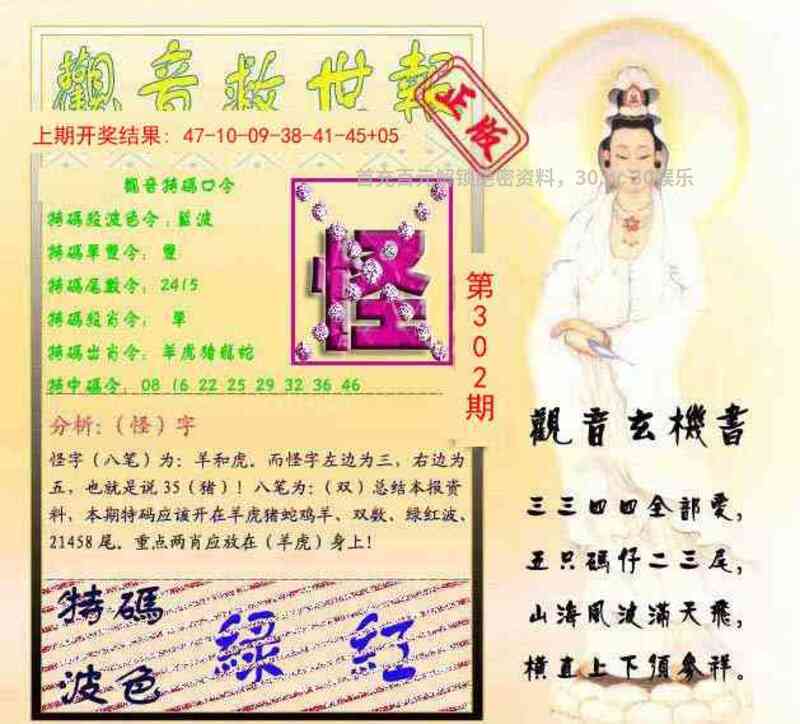 觀音救世報
正版
上期开奖结果：47-10-09-38-41-45+05
首充百元解锁绝密资料，30.cc 30娱乐
觀音特碼口令
特碼段波色令：藍波
特碼單雙令：雙
特碼尾數令：2415
特碼段肖令：單
特碼出肖令：羊虎猪龍蛇
特中碼令：08 16 22 25 29 32 36 46
怪
第302期
分析：（怪）字
怪字（八笔）为：羊和虎。而怪字左边为三，右边为
五，也就是说35（猪）！八笔为：（双）总结本报资
料，本期特码应该开在羊虎猪蛇鸡羊、双数。绿红波、
21458尾。重点两肖应放在（羊虎）身上！
特碼
波色
綠 紅
觀音玄機書
三三四四全部愛，
五只碼仔二三尾，
山海風波滿天飛，
橫直上下須參祥。